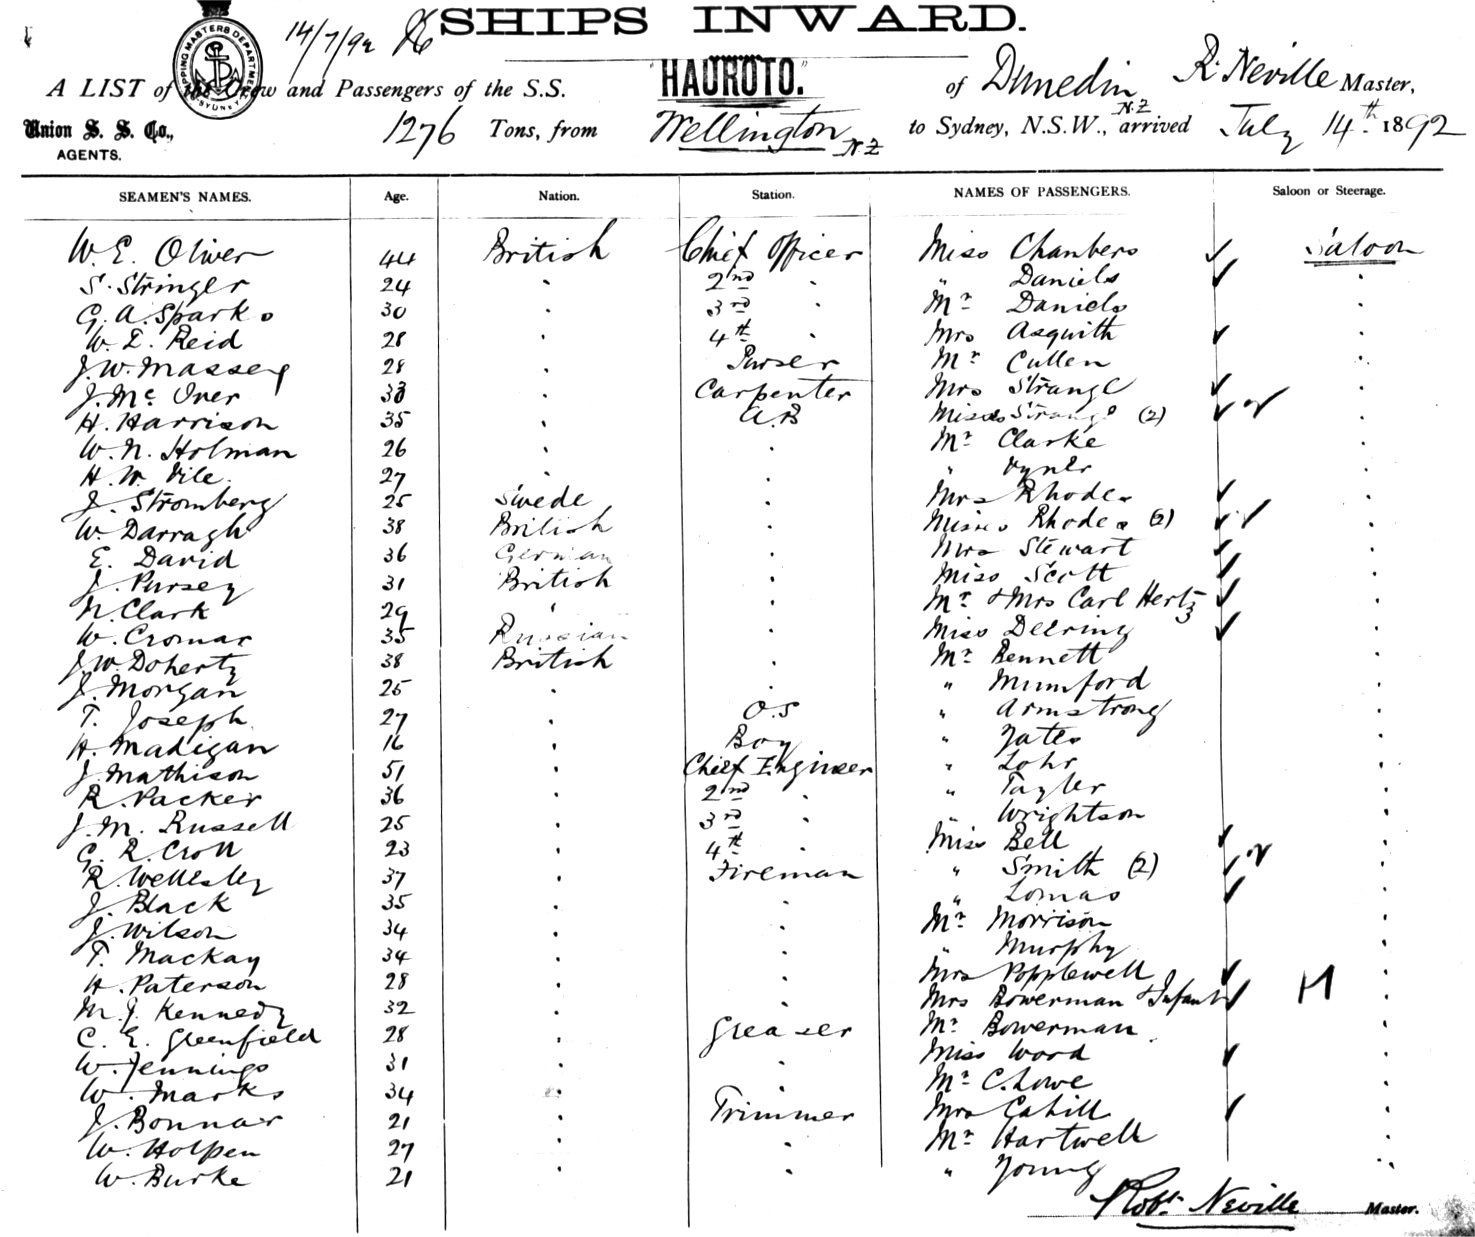 SHIPS INWARD.
SHIPPING MASTERS DEPARTMENT SYDNEY
14/7/92
A LIST of the Crew and Passengers of the S.S. "HAUROTO." of Dunedin N.Z R. Neville Master,
Union S. S. Co., AGENTS. 1276 Tons, from Wellington N Z to Sydney, N.S.W., arrived July 14th 1892
SEAMEN'S NAMES. Age. Nation. Station. NAMES OF PASSENGERS. Saloon or Steerage.
W. E. Oliver 44 British Chief Officer Miss Chambers ✓ Saloon
S. Stringer 24 . 2nd . " Daniels ✓ .
G. A. Sparks 30 . 3rd . Mr Daniels .
W. E. Reid 28 . 4th . Mrs Asquith ✓ .
J. W. Massey 28 . Purser Mr Cullen .
J. Mc Iver 33 . Carpenter Mrs Strange ✓ .
H. Harrison 35 . A.B Misses Strange (2) ✓ ✓ .
W. N. Holman 26 . . Mr Clarke .
H. W. Vile 27 . . " Vyner .
J. Stromberg 25 Swede . Mrs Rhodes ✓ .
W. Darragh 38 British . Misses Rhodes (2) ✓ ✓ .
E. David 36 German . Mrs Stewart ✓ .
J. Pursey 31 British . Miss Scott ✓ .
N. Clark 29 . . Mr & Mrs Carl Hertz ✓ .
W. Cromar 35 Russian . Miss Deering ✓ .
J. W. Doherty 38 British . Mr Bennett .
J. Morgan 25 . . " Mumford .
T. Joseph 27 . O.S " Armstrong .
H. Madigan 16 . Boy " Yates .
J. Mathison 51 . Chief Engineer " Lohr .
R. Packer 36 . 2nd . " Tayler .
J. M. Russell 25 . 3rd . " Wrightson .
G. R. Croll 23 . 4th . Miss Bell ✓ .
R. Wellesley 37 . Fireman " Smith (2) ✓ ✓ .
J. Black 35 . . " Lomas ✓ .
J. Wilson 34 . . Mr Morrison .
T. Mackay 34 . . " Murphy .
H. Paterson 28 . . Mrs Popplewell ✓ .
M. J. Kennedy 32 . . Mrs Bowerman & Infant ✓ M .
C. E. Greenfield 28 . Greaser Mr Bowerman .
W. Jennings 31 . . Miss Word ✓ .
W. Marks 34 . . Mr C. Lowe .
J. Bonnar 21 . Trimmer Mrs Cahill ✓ .
W. Holpen 27 . . Mr Hartwell .
W. Burke 21 . . " Young .
Robt. Neville Master.